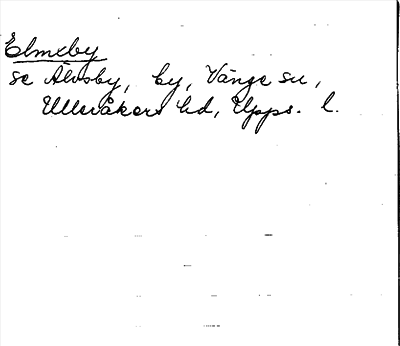 Elmeby
se Älvsby, by, Vänge sn,
Ulleråkers hd, Upps. l.